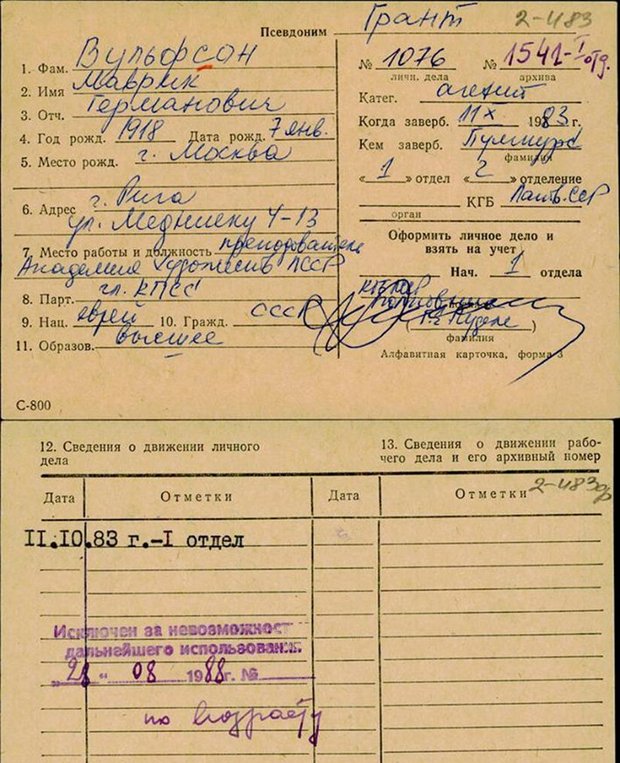 Псевдоним Грант 2-483
1. Фам. Вульфсон
2. Имя Маврик
3. Отч. Германович
4. Год рожд. 1918 Дата рожд. 7 янв.
5. Место рожд. г. Москва
6. Адрес г. Рига
ул. Медниеку 4-13
7. Место работы и должность преподаватель
Академия художеств ЛССР
8. Парт. чл. КПСС
9. Нац. еврей 10. Гражд. СССР
11. Образов. высшее
С-800
№ 1076 № 1541-I отд.
личн. дела архива
Катег. агент
Когда заверб. 11 X 1983 г.
Кем заверб.
фамилия
«1» отдел «2» отделение
КГБ Латв. ССР
орган
Оформить личное дело и
взять на учет
Нач. 1 отдела
фамилия
Алфавитная карточка, форма 3
12. Сведения о движении личного
дела
13. Сведения о движении рабо-
чего дела и его архивный номер
Дата Отметки Дата Отметки 2-483
II.IO.83 г.-I отдел
Исключен за невозможност
дальнейшего использован.
"28" 08 1988 г. №
по возрасту